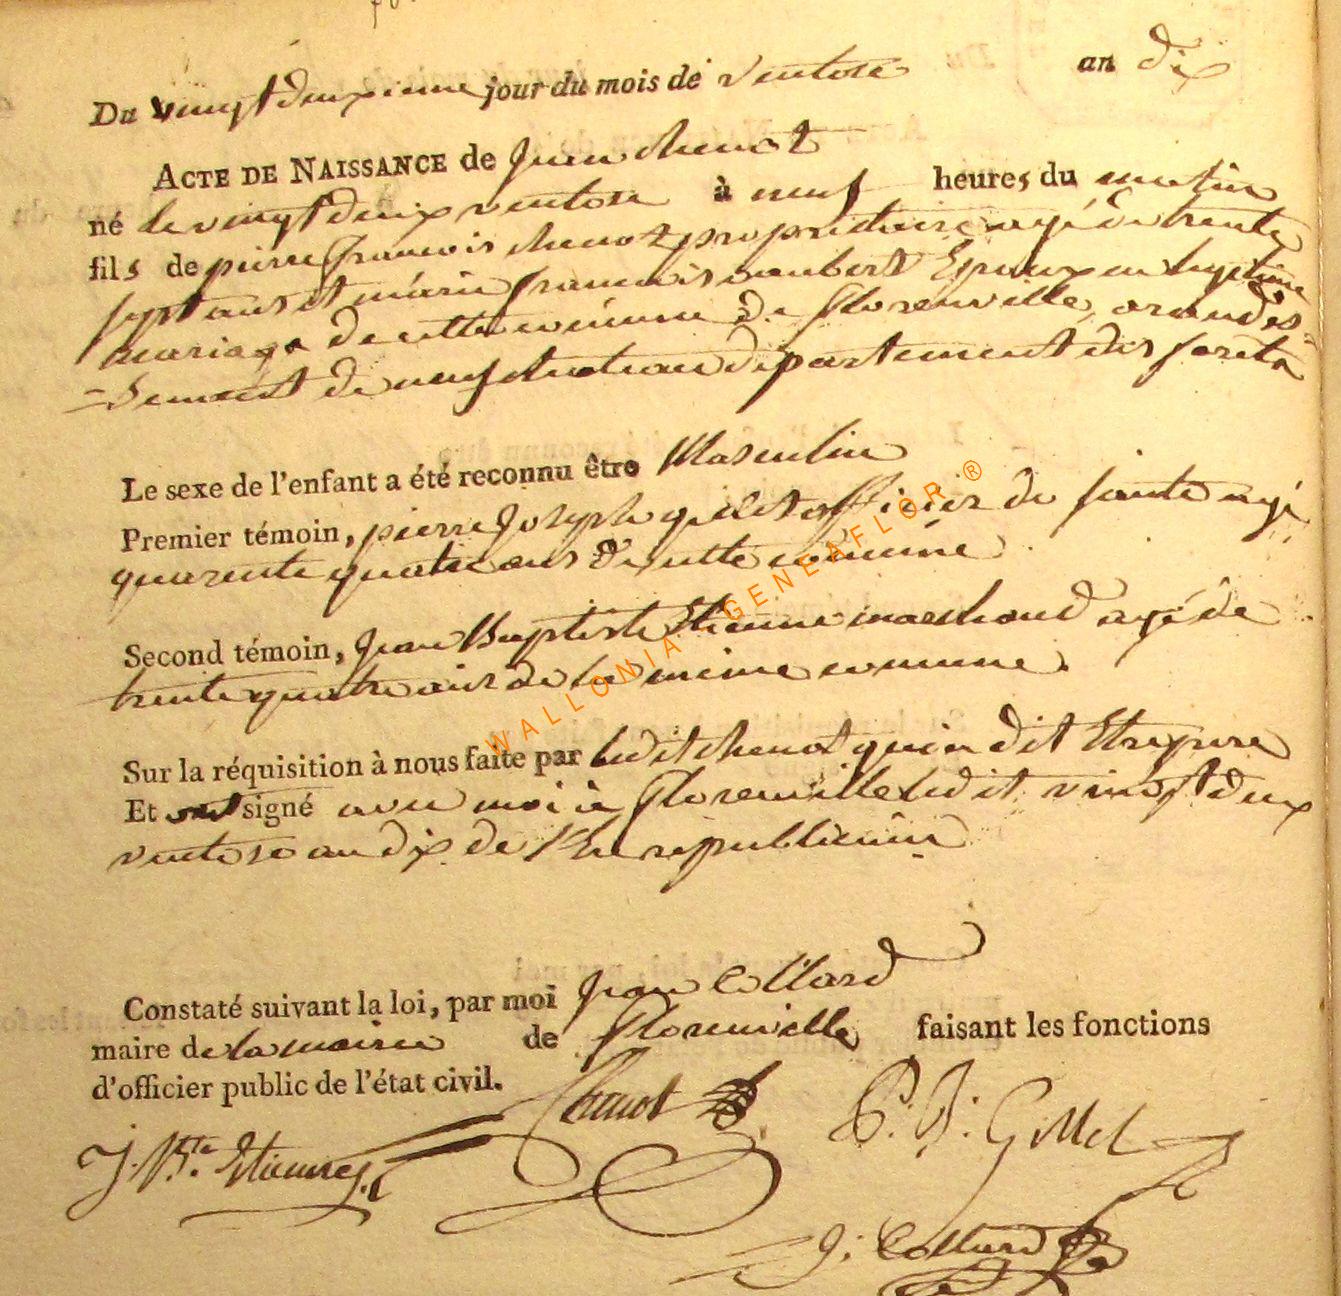 Du vingt deuxieme jour du mois de ventose an dix
ACTE DE NAISSANCE de Jean chenot
né le vingt deux ventose à neuf heures du matin
fils de pierre francois chenot propriétaire agé de trente
sept ans et marie francois aubert Epoux en legitime
mariage de cette comune de florenville arondis=
=sement de neufchateau département des forets
Le sexe de l'enfant a été reconnu être Masculin
Premier témoin, pierre Joseph gillet officier de santé agé
quarente quatre ans de cette comune
Second témoin, Jean Baptiste Etienne marchand agé de
trente quatre ans de la même commune.
Sur la réquisition à nous faite par ledit chenot qui a dit Etre pere
Et ont signé avec moi a florenville ledit vingt deux
ventose an dix de l'Ere republicain
Constaté suivant la loi, par moi Jean Collard
maire de la mairie de florenville faisant les fonctions
d'officier public de l'état civil.
Chenot
P. J. Gillet
J. Bte Etienne
J. Collard
WALLONIA GENEAFLOR ®